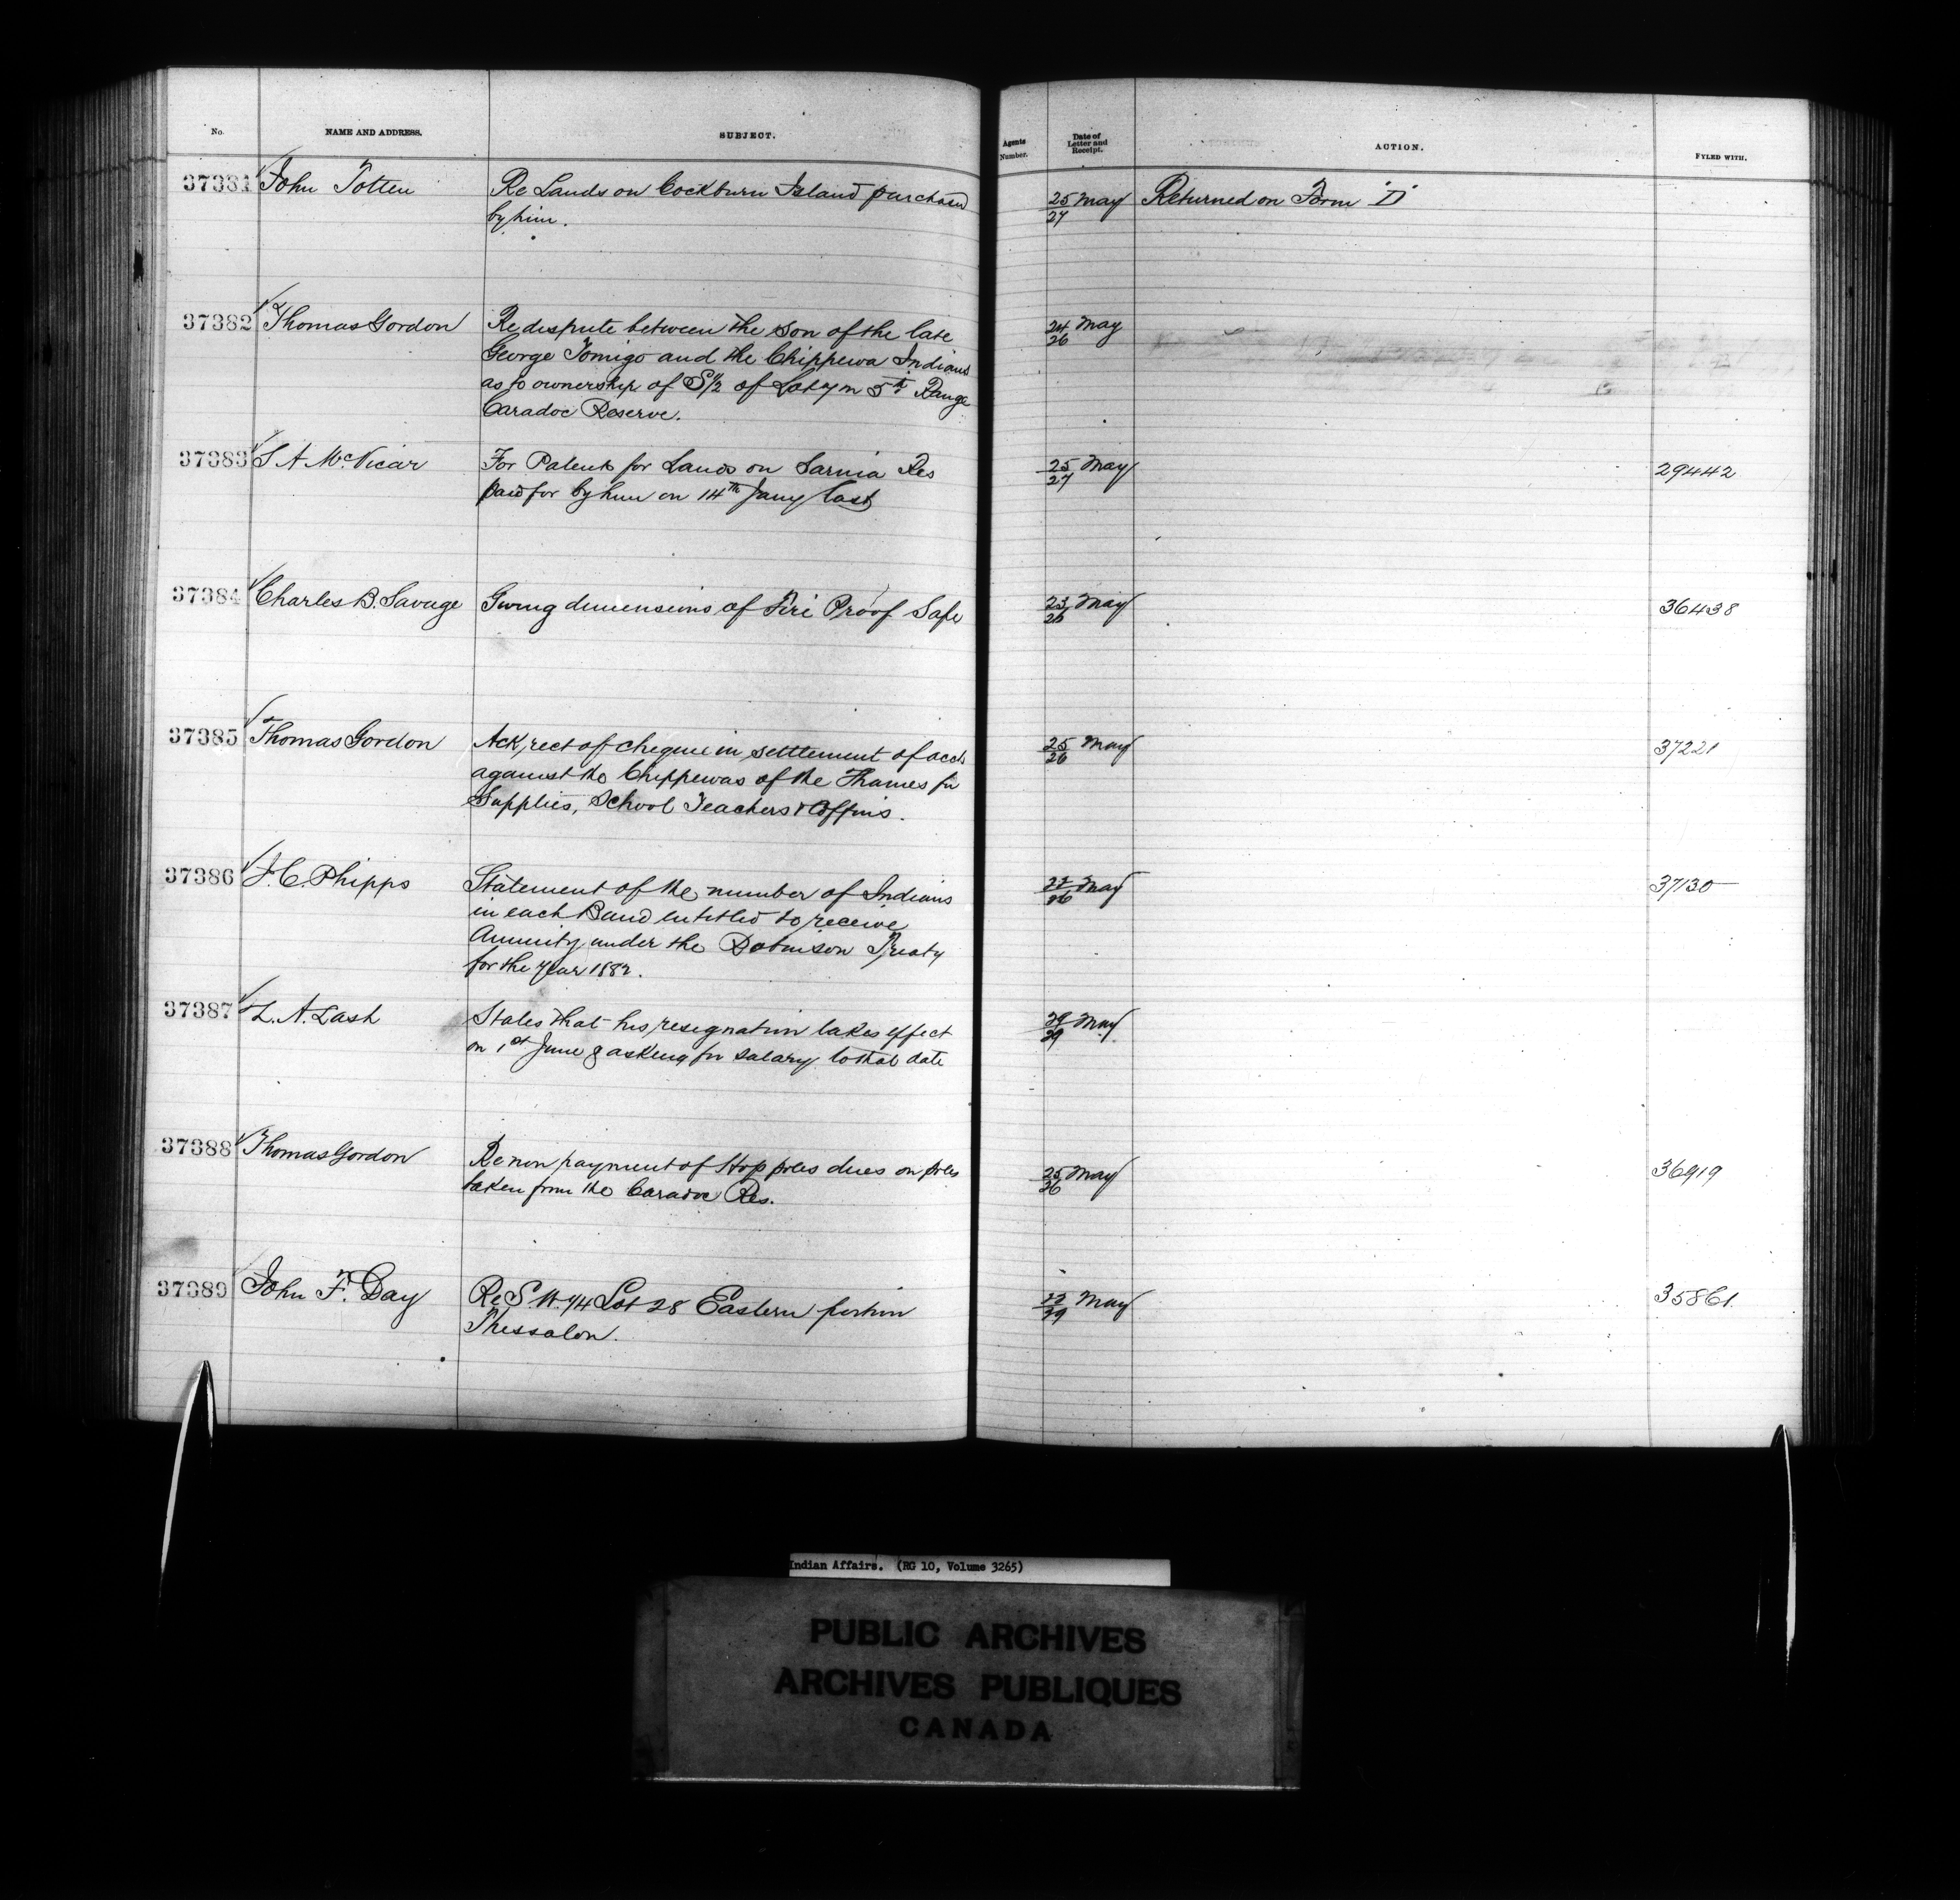 No. NAME AND ADDRESS. SUBJECT. Agents Number. Date of Letter and Receipt. ACTION. FYLED WITH.
37381 John Totten Re Lands on Cockburn Island purchased 25/27 May Returned on Form "D"
by him.
37382 Thomas Gordon Re dispute between the son of the late 24/26 May
George Tomigo and the Chippewa Indians
as to ownership of S½ of Lot 7 in 5th Range
Caradoc Reserve.
37383 S A McVicar For Patents for Lands on Sarnia Res 25/27 May 29442
paid for by him on 14th Jany last
37384 Charles B. Savage Giving dimensions of Fire Proof Safe 23/26 May 36438
37385 Thomas Gordon Ack, rect of cheque in settlement of accts 25/26 May 37221
against the Chippewas of the Thames for
Supplies, School Teachers & Coffins.
37386 J. C. Phipps Statement of the number of Indians 22/26 May 37130
in each Band entitled to receive
Annuity under the Robinson Treaty
for the year 1882.
37387 Z. A. Lash States that his resignation takes effect 29/29 May
on 1st June & asking for salary to that date
37388 Thomas Gordon Re non payment of Hop poles dues on poles 25/26 May 36919
taken from the Caradoc Res.
37389 John F. Day Re S.W. ¼ Lot 28 Eastern portion 22/29 May 35861.
Thessalon.
Indian Affairs. (RG 10, Volume 3265)
PUBLIC ARCHIVES
ARCHIVES PUBLIQUES
CANADA